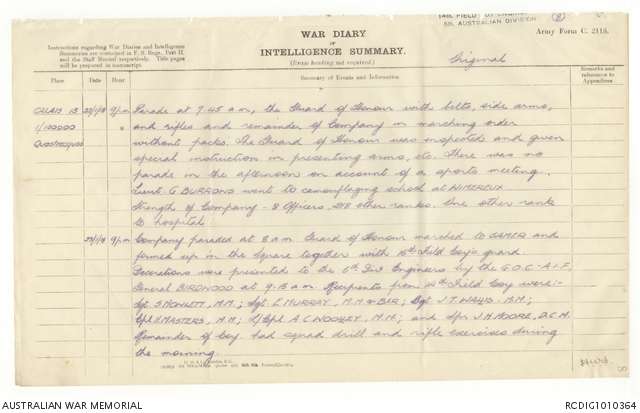 14th FIELD
5th. AUSTRALIAN DIVISION
Army Form C. 2118.
WAR DIARY
or
INTELLIGENCE SUMMARY.
(Erase heading not required.)
Original
Instructions regarding War Diaries and Intelligence
Summaries are contained in F. S. Regs., Part II.
and the Staff Manual respectively. Title pages
will be prepared in manuscript.
Place
Date
Hour
Summary of Events and Information
Remarks and
references to
Appendices
CALAIS 13 9 p.m. Parade at 9.45 a.m., the Guard of Honour with belts, side arms,
1/100000 and rifles and remainder of Company in marching order
without packs. The Guard of Honour was inspected and given
special instruction in presenting arms, etc. There was no
parade in the afternoon on account of a sports meeting.
Lieut. G BURROWS went to camouflaging school at WIMEREUX
Strength of Company - 8 Officers, 218 other ranks. One other rank
to hospital.
9 p.m. Company paraded at 8 a.m. Guard of Honour marched to SAMER and
formed up in the Square together with 15th Field Coy's guard.
Decorations were presented to the 5th Div Engineers by the G.O.C. A.I.F.,
General BIRDWOOD at 9.15 a.m. Recipients from 14th Field Coy were:-
Sgt. S HOWLETT, M.M.; Sgt. L MURRAY, M.M & BAR; Sgt J.T. WALLIS. M.M.;
Cpl. MASTERS, M.M.; L/Cpl. A.C. WOOLLEY, M.M.; and Spr J.H. MOORE, D.C.M.
Remainder of Coy. had squad drill and rifle exercises during
the morning.
AUSTRALIAN WAR MEMORIAL
RCDIG1010364